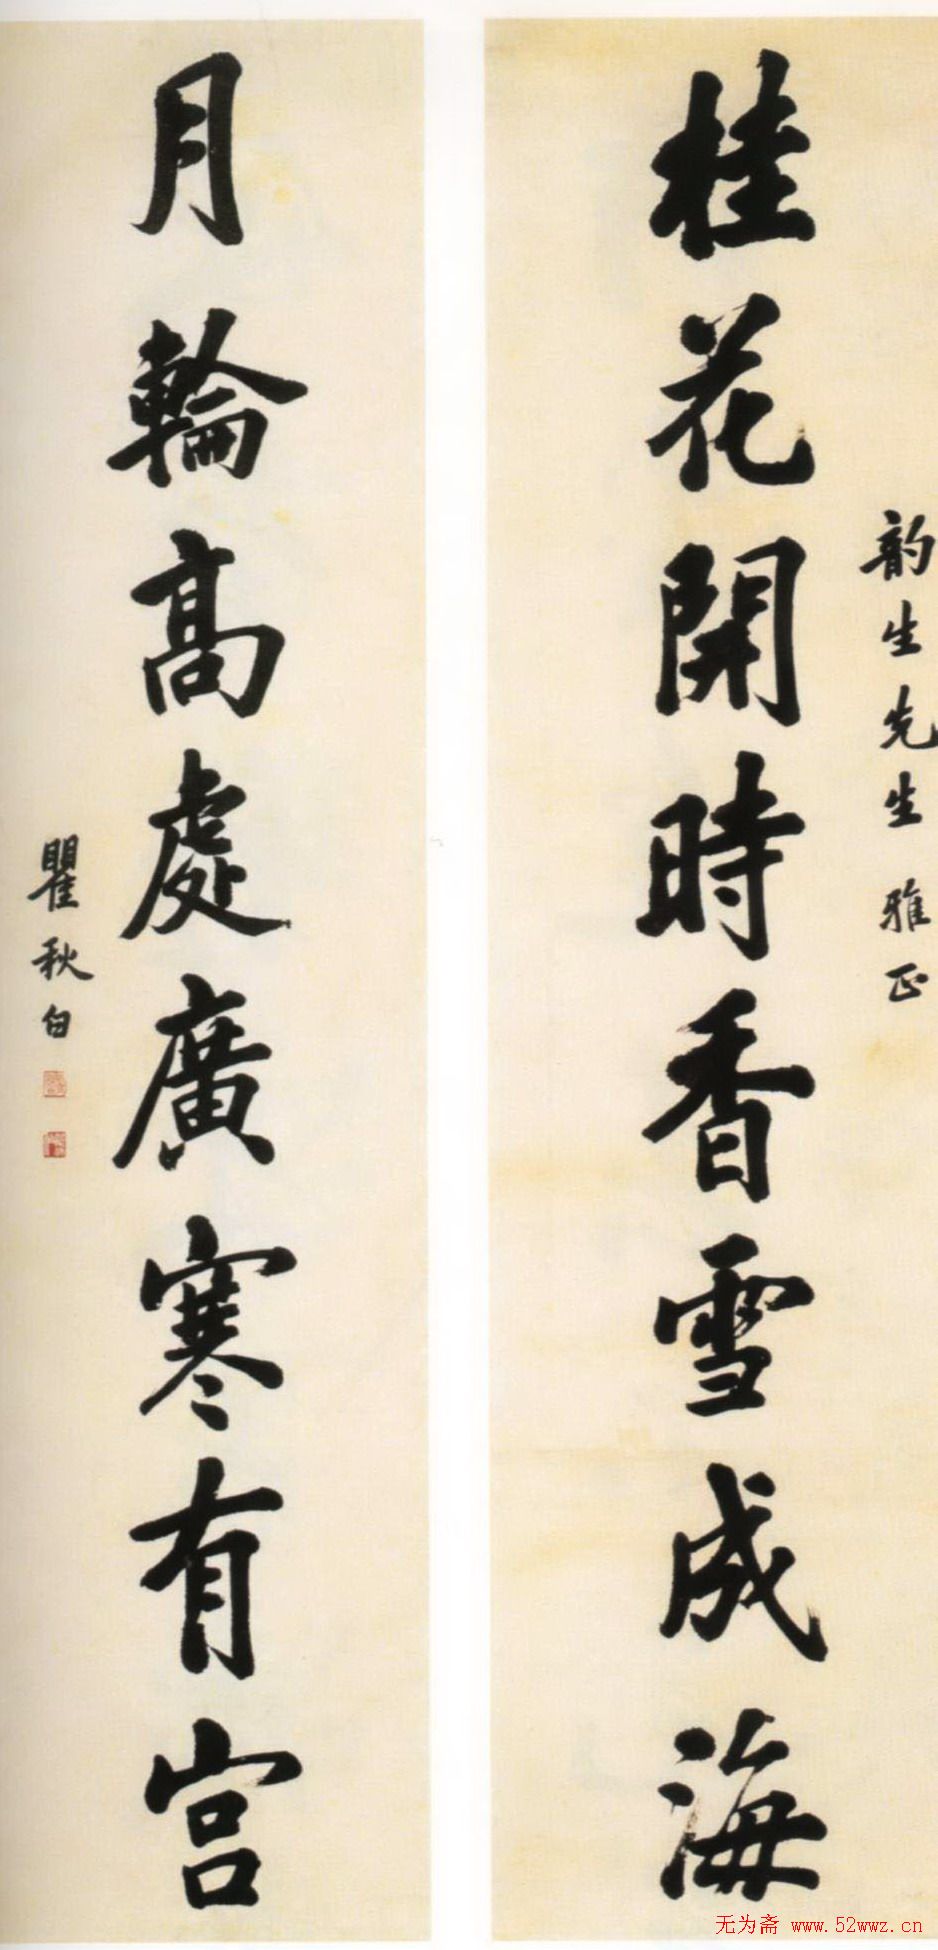 韵生先生雅正
桂花開時香雪成海
月輪高處廣寒有宫
瞿秋白
无为斋 www.52wwz.cn